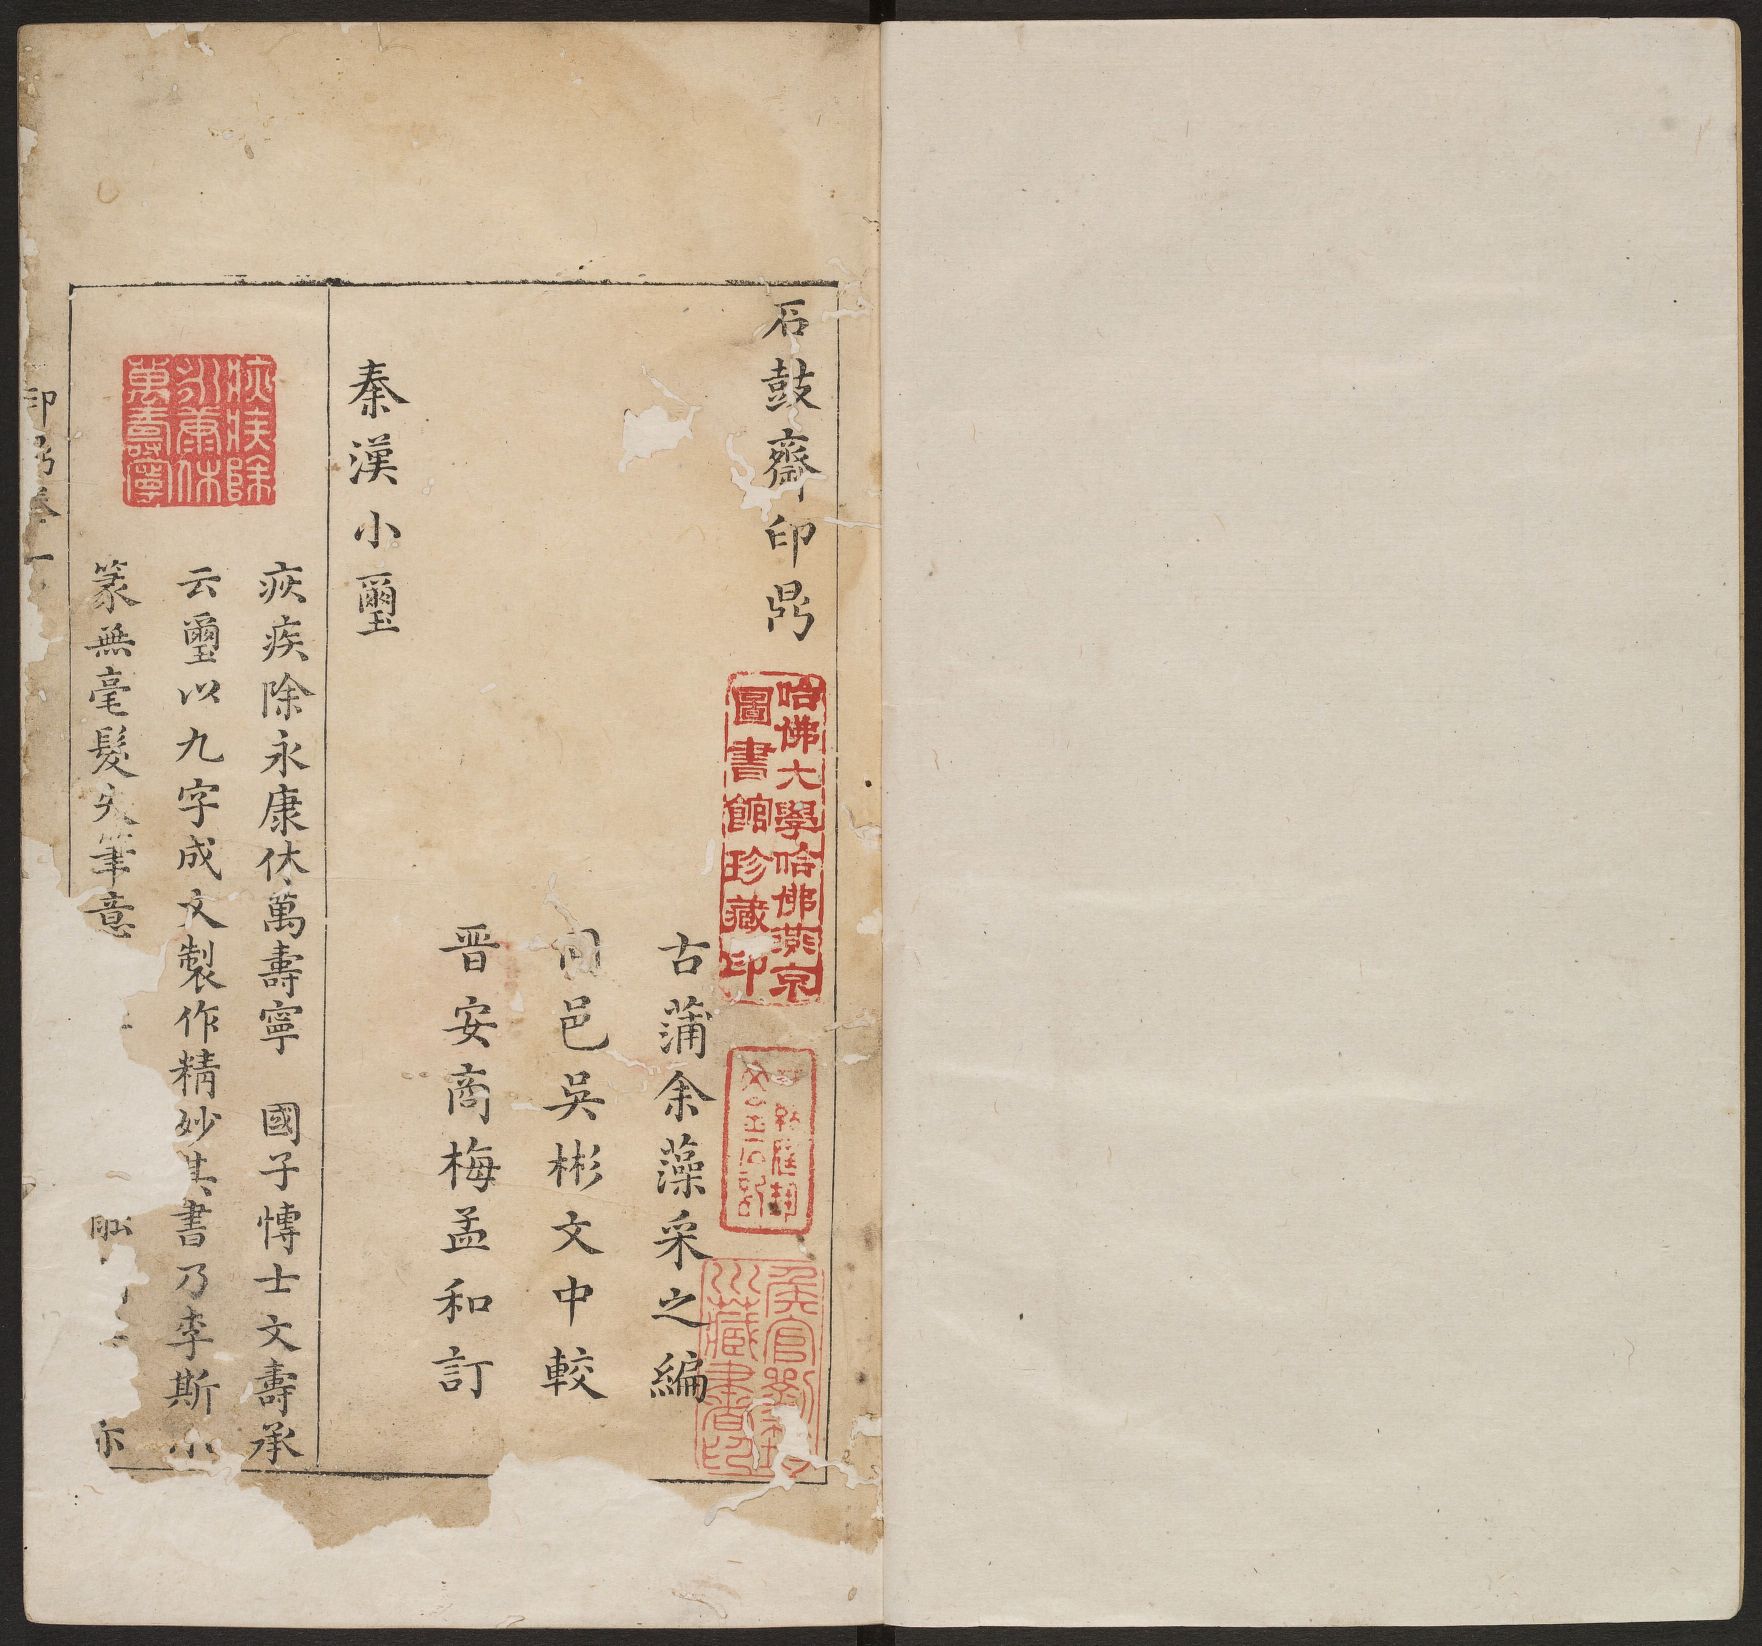 石鼓齋印鼎
哈佛大學哈佛燕京
圖書館珍藏印
古蒲余藻采之編
同邑吳彬文中較
晉安商梅孟和訂
秦漢小璽
疢疾除
永康休
萬壽寧
疢疾除永康休萬壽寧 國子博士文壽承
云璽以九字成文製作精妙其書乃李斯小
篆無毫髮失筆意
印鼎卷一